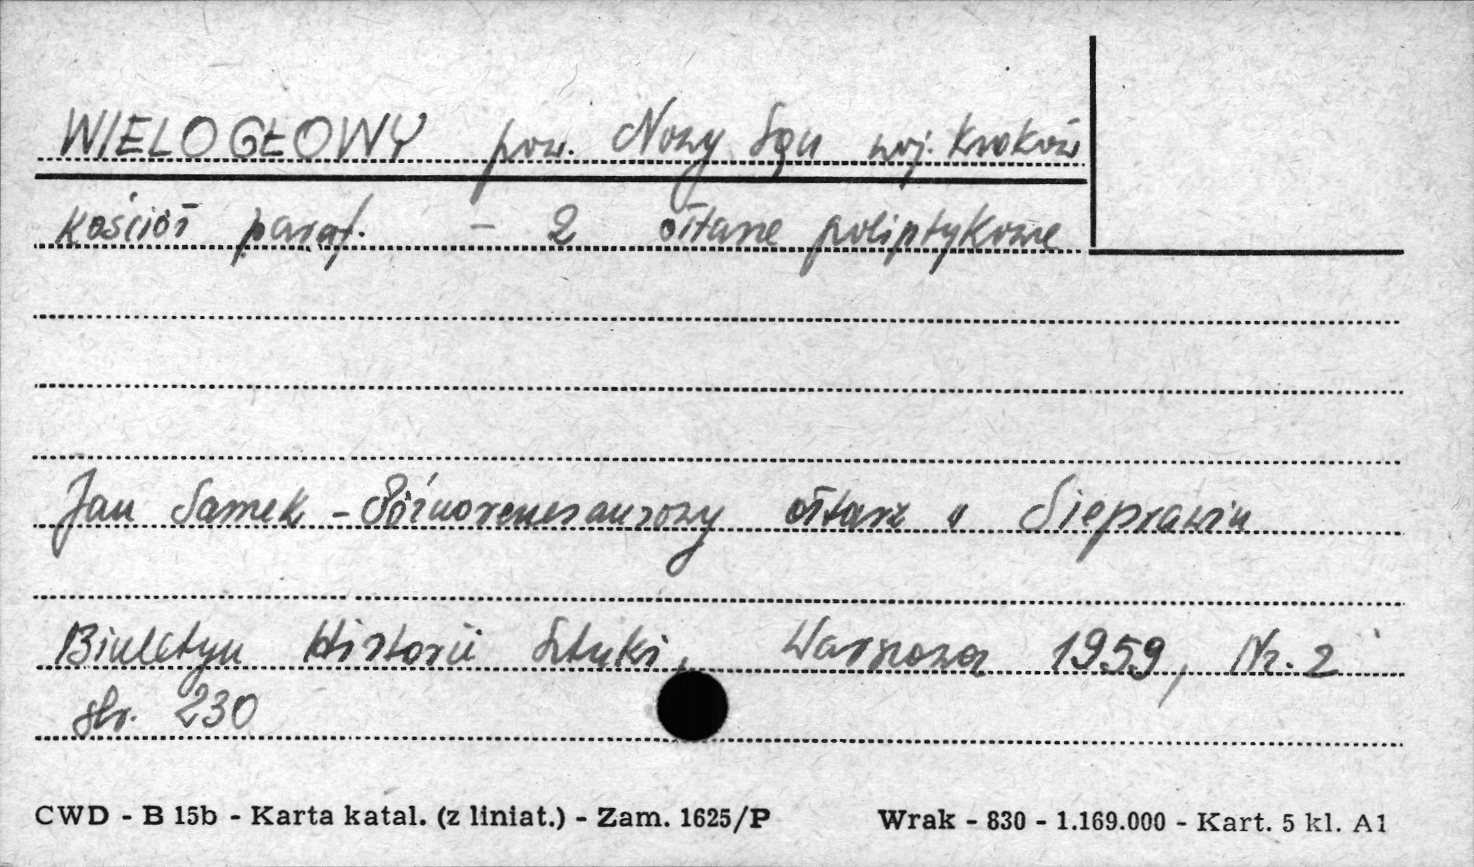 WIELOGŁOWY pow. Nowy Sącz woj. Kraków
Kościół paraf. – 2 ołtarze poliptykowe
Jan Samek – Późnorenesansowy ołtarz w Sieprawiu
Biuletyn Historii Sztuki, Warszawa 1959, Nr. 2
str. 230
CWD - B 15b - Karta katal. (z liniat.) - Zam. 1625/P Wrak - 830 - 1.169.000 - Kart. 5 kl. A1